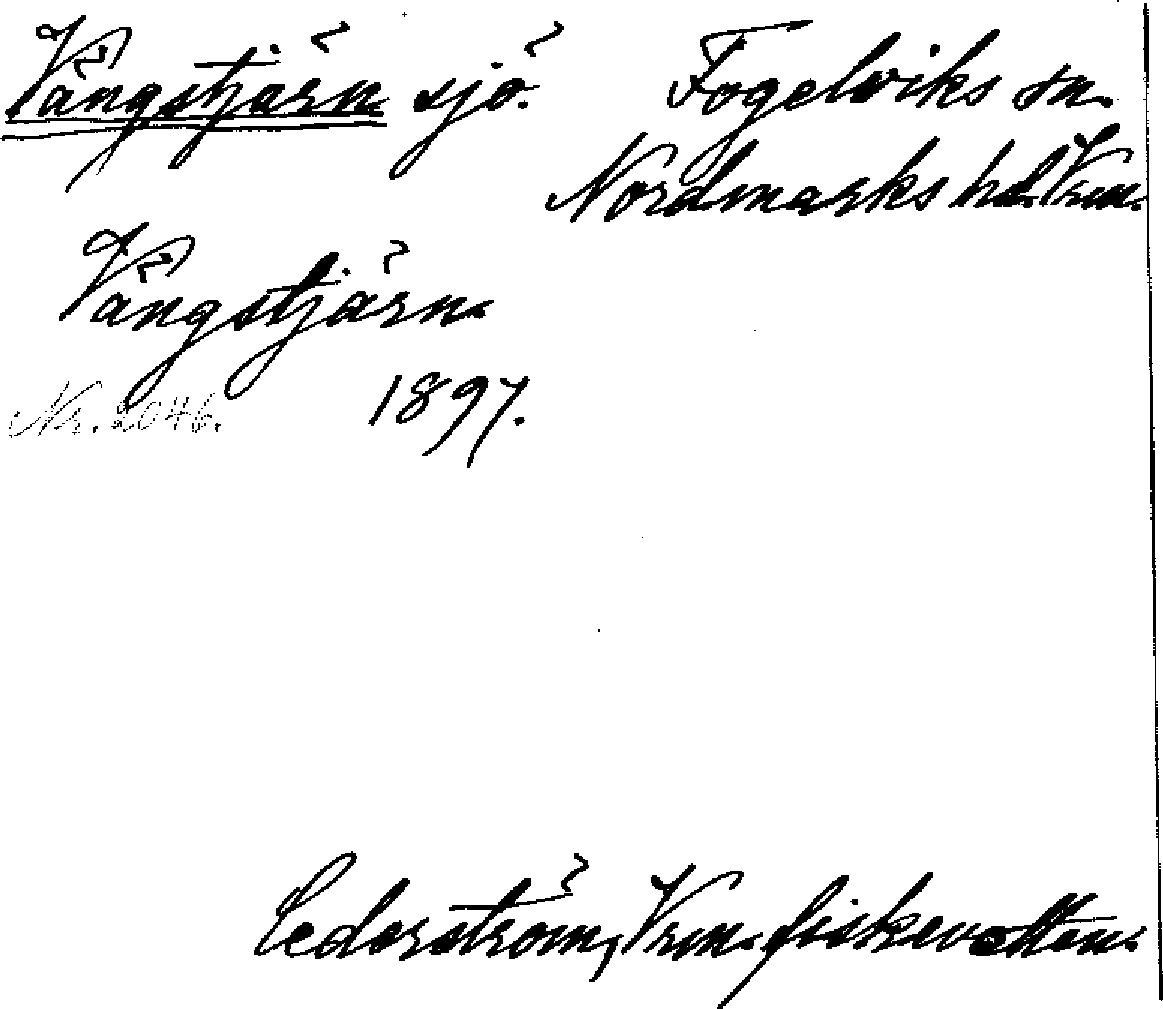 Vängstjärn sjö. Fogelviks sn.
Nordmarks hd. Vrm.
Vängstjärn
Nr. 2046. 1897.
Cederström, Vrm. fiskevatten.